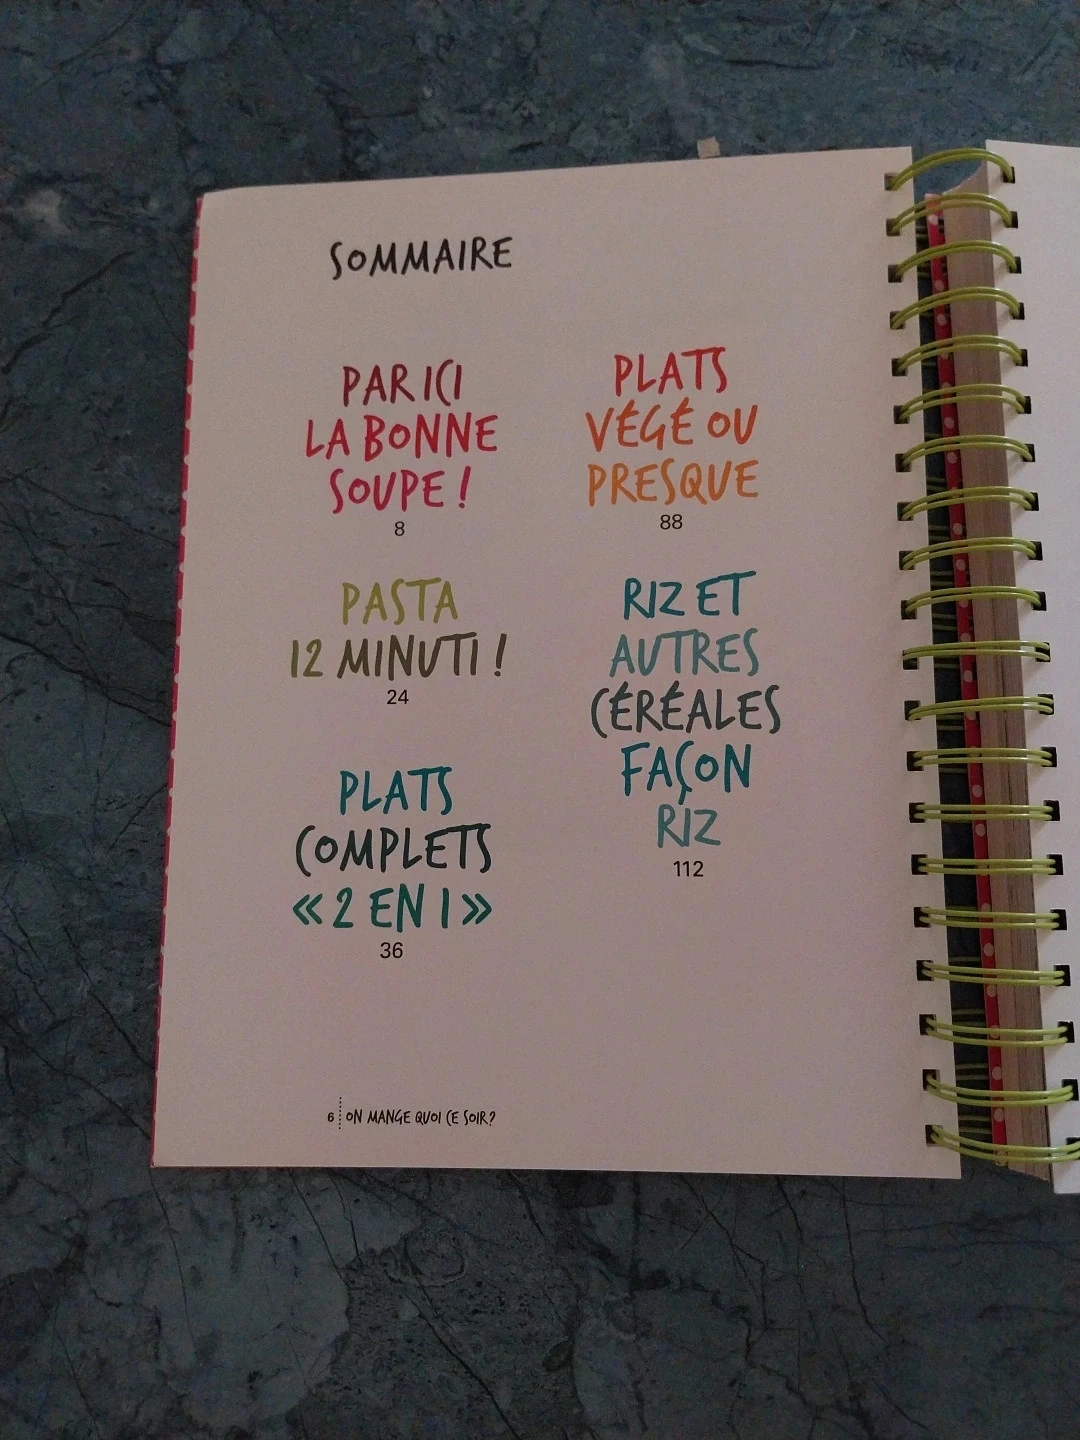 SOMMAIRE
PAR ICI
LA BONNE
SOUPE !
8
PASTA
12 MINUTI !
24
PLATS
COMPLETS
« 2 EN 1 »
36
PLATS
VÉGÉ OU
PRESQUE
88
RIZ ET
AUTRES
CÉRÉALES
FAÇON
RIZ
112
6 ON MANGE QUOI CE SOIR?